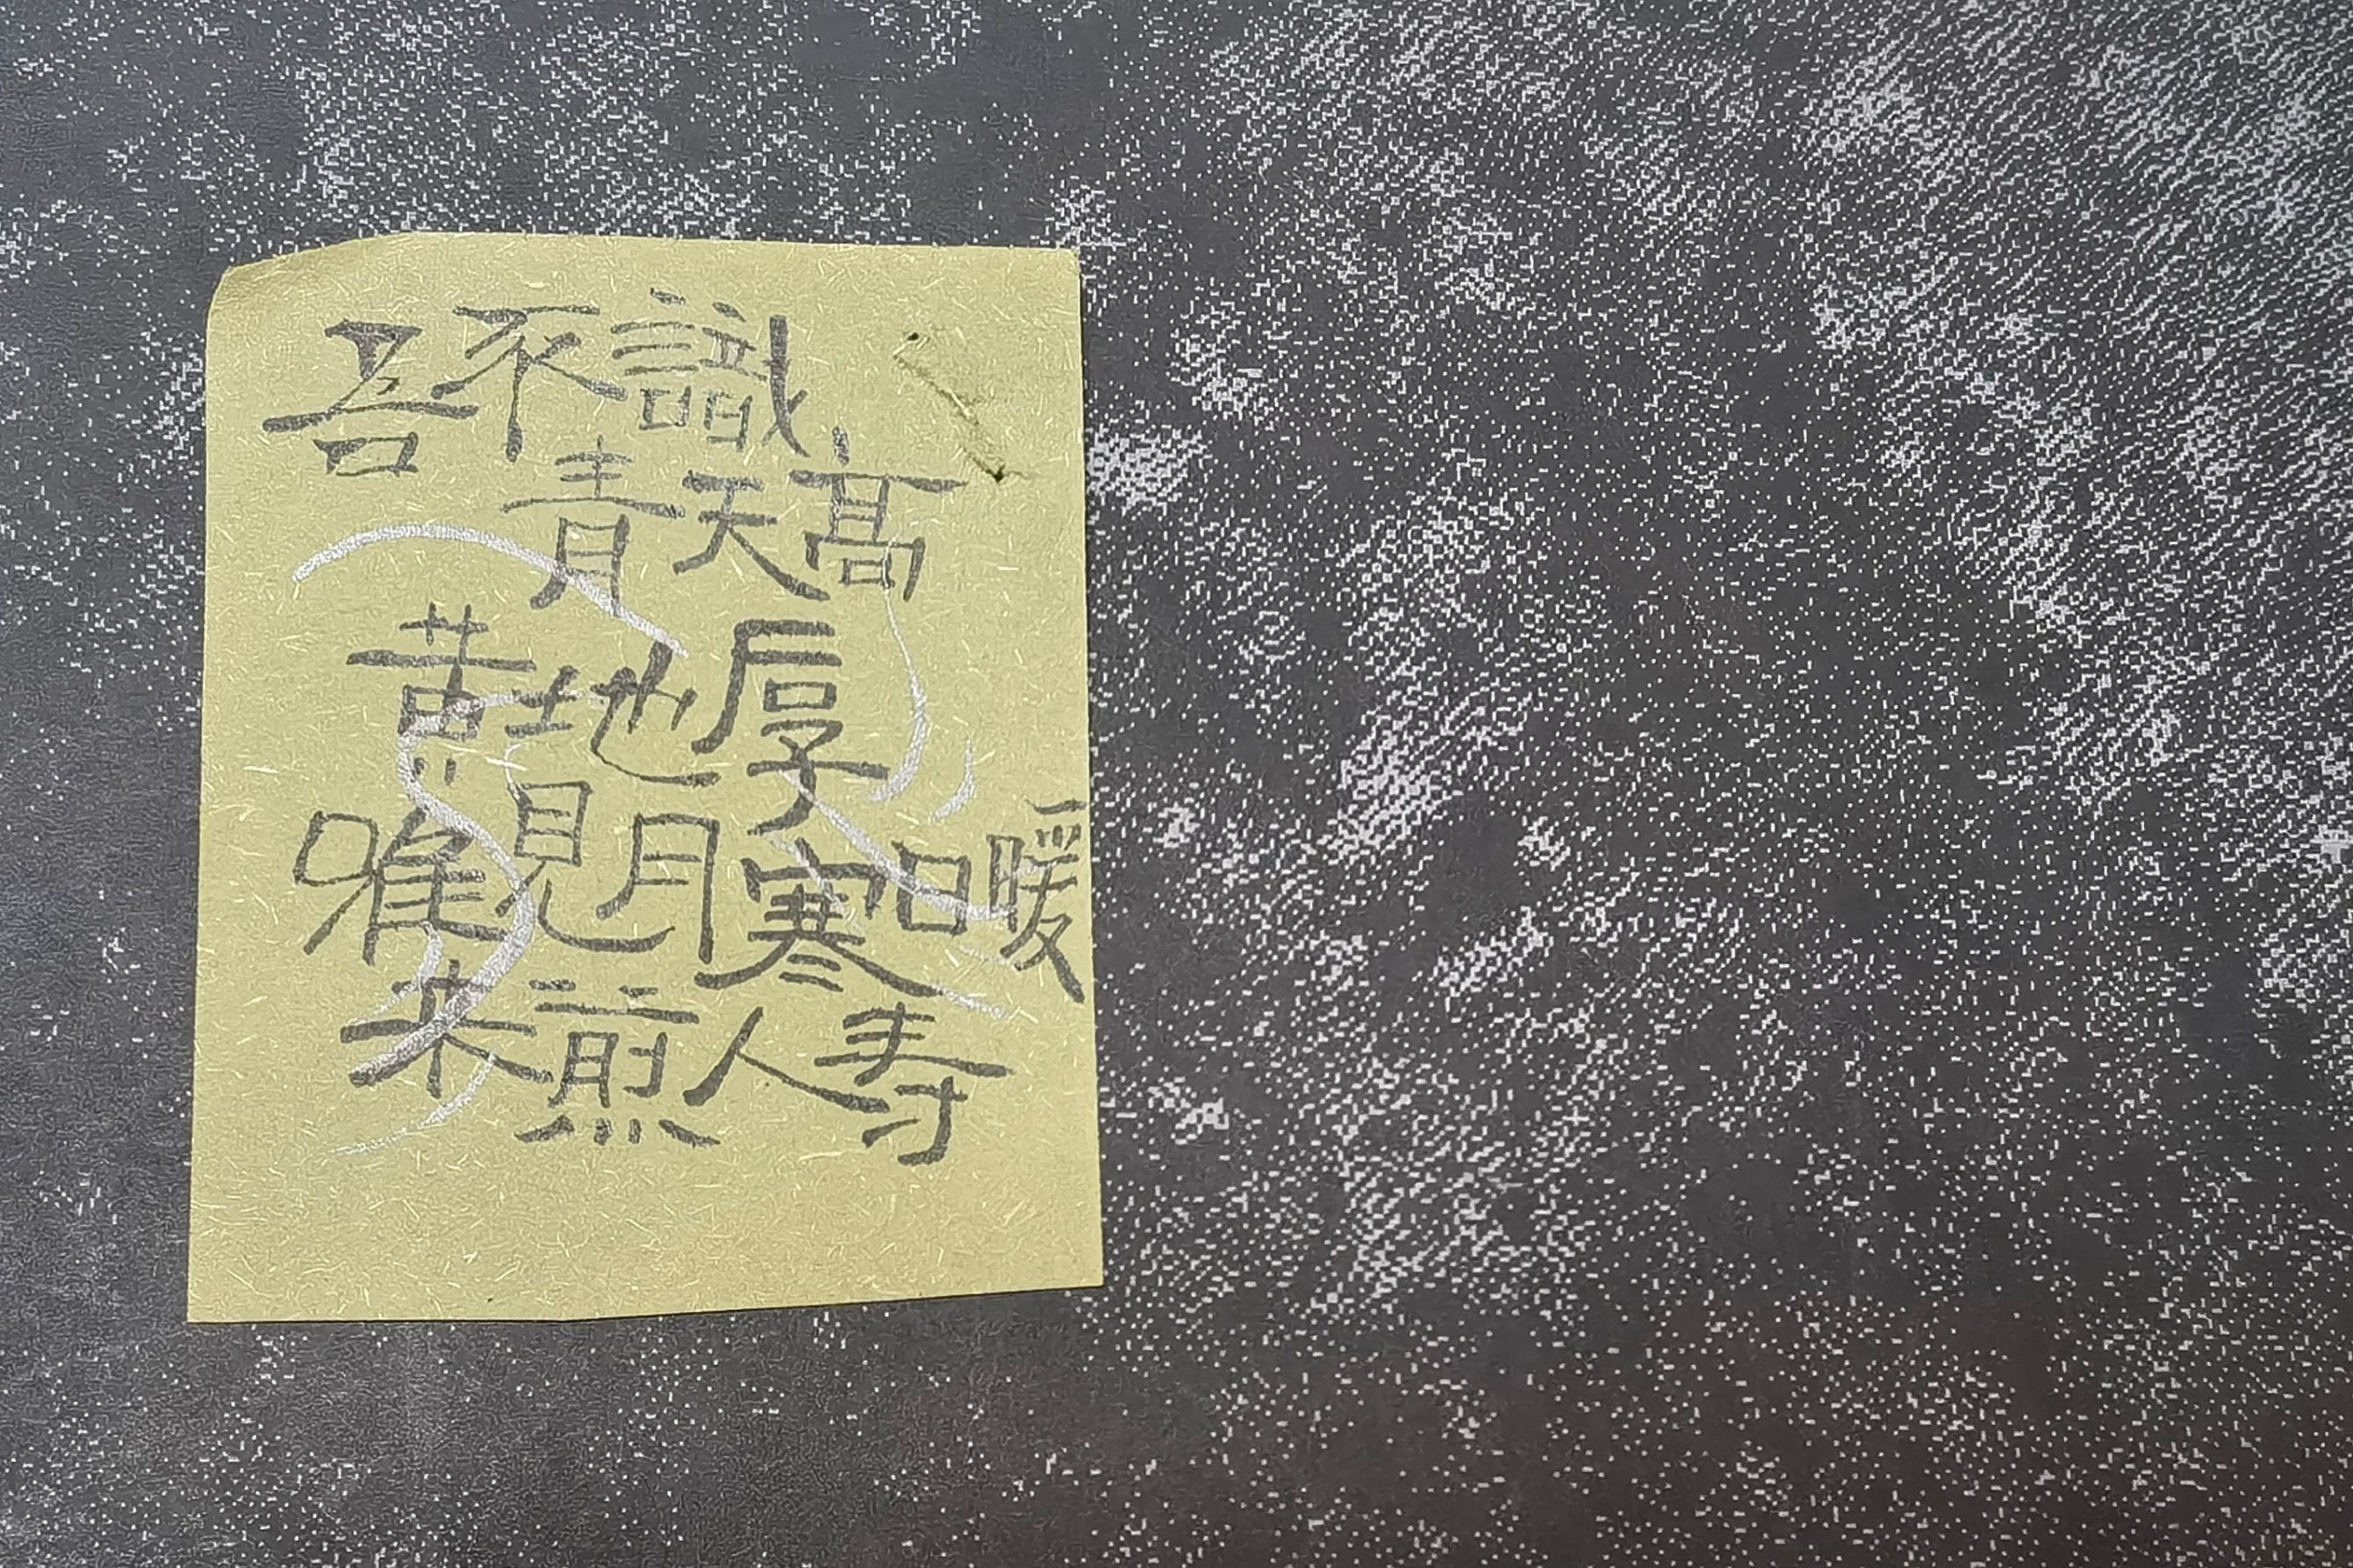 吾不識
青天高
黄地厚
唯見月寒日暖
来煎人寿